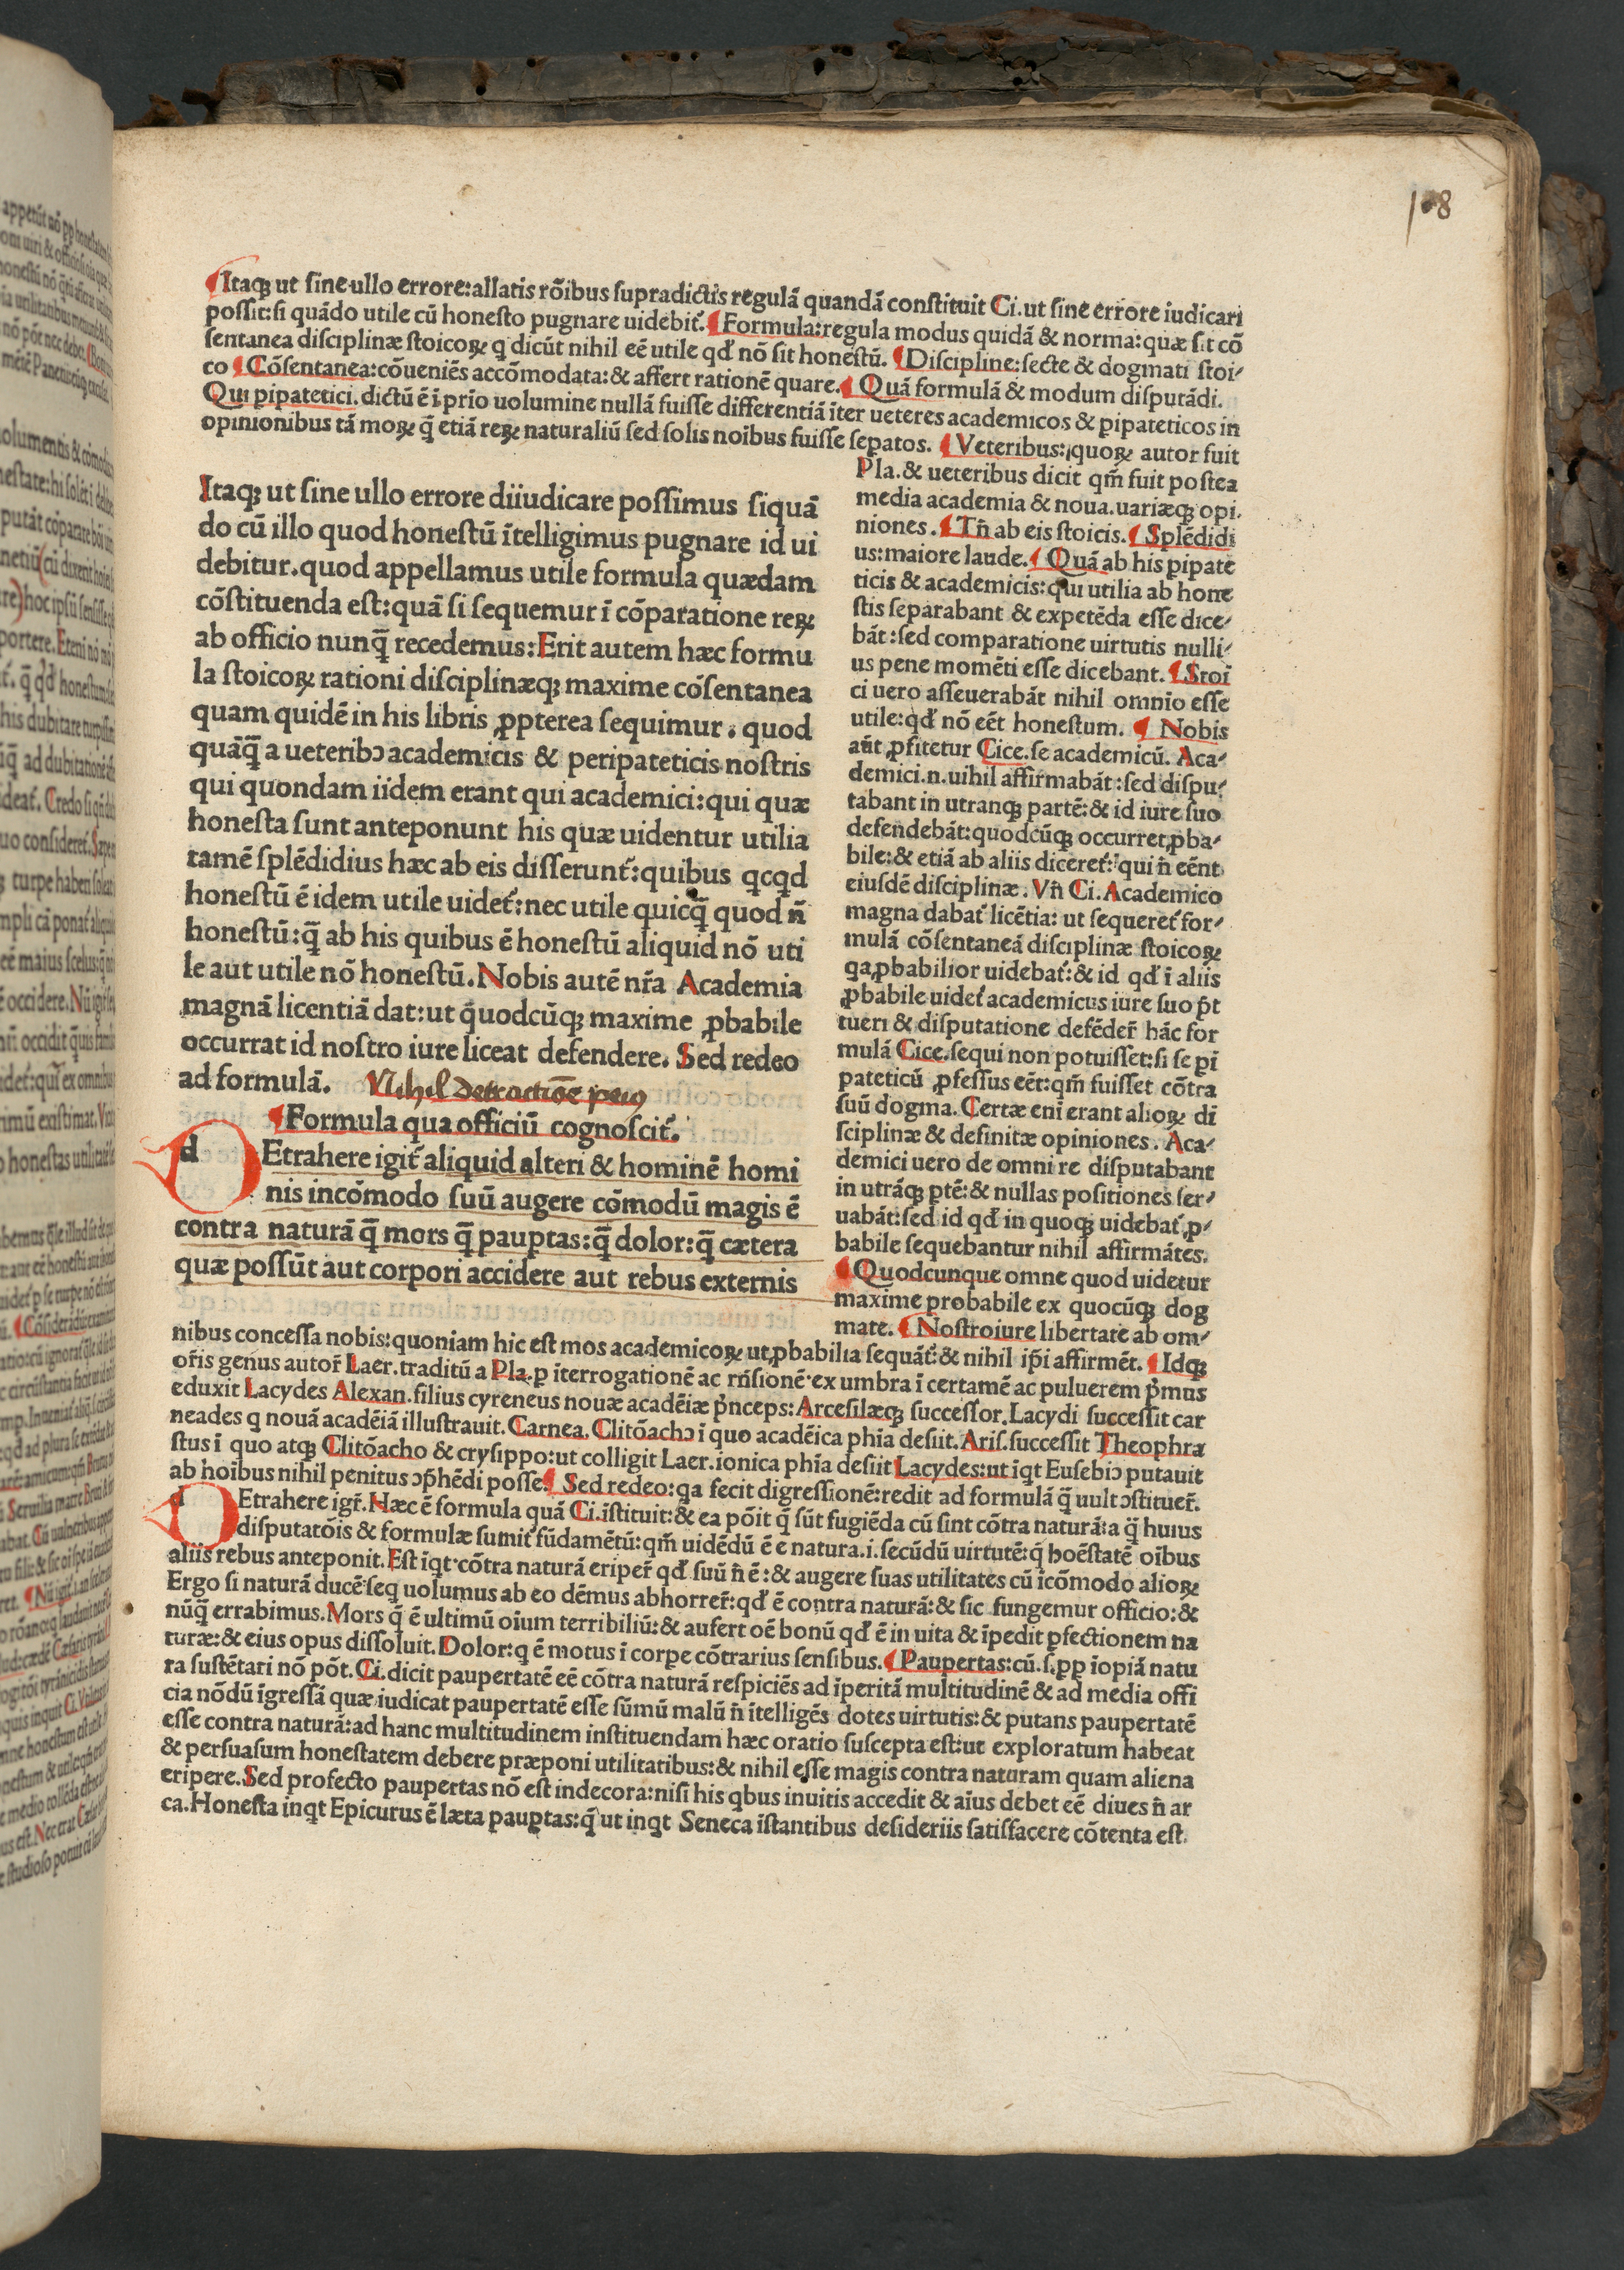 108
Itaqꝫ ut sine ullo errore:allatis rōibus supradictis regulā quandā constituit Ci.ut sine errore iudicari
possit:si quādo utile cū honesto pugnare uidebit̃.¶Formula:regula modus quidā & norma:quæ sit cō
sentanea disciplinæ stoicoꝝ q dicūt nihil eē utile qď nō sit honestū. ¶Discipline:secte & dogmati stoi-
co ¶Cōsentanea:cōueniēs accōmodata:& affert rationē quare.¶Quā formulā & modum disputādi.
Qui pipatetici.dictū ē ī prīo uolumine nullā fuisse differentiā īter ueteres academicos & pipateticos in
opinionibus tā moꝝ q̄ etiā reꝝ naturaliū sed solis noībus fuisse sepatos. ¶Veteribus:quoꝝ autor fuit
Itaqꝫ ut sine ullo errore diiudicare possimus siquā
do cū illo quod honestū ītelligimus pugnare id ui
debitur.quod appellamus utile formula quædam
cōstituenda est:quā si sequemur ī cōparatione reꝝ
ab officio nunq̄ recedemus:Erit autem hæc formu
la stoicoꝝ rationi disciplinæqꝫ maxime cōsentanea
quam quidē in his libris ꝓpterea sequimur. quod
quāq̄ a ueteribꝰ academicis & peripateticis nostris
qui quondam iidem erant qui academici:qui quæ
honesta sunt anteponunt his quæ uidentur utilia
tamē splēdidius hæc ab eis disserunt̃:quibus qcqd
honestū ē idem utile uidet̃:nec utile quicq̄ quod n̄
honestū:q̄ ab his quibus ē honestū aliquid nō uti
le aut utile nō honestū.Nobis autē nr̄a Academia
magnā licentiā dat:ut quodcūqꝫ maxime ꝓbabile
occurrat id nostro iure liceat defendere. Sed redeo
ad formulā. Nihil detractiōe peiꝰ
¶Formula qua officiū cognoscit̃.
dEtrahere igit̃ aliquid alteri & hominē homi
nis incōmodo suū augere cōmodū magis ē
contra naturā q̄ mors q̄ pauptas:q̄ dolor:q̄ cætera
quæ possūt aut corpori accidere aut rebus externis
Pla.& ueteribus dicit qm̄ fuit postea
media academia & noua.uariæqꝫ opi.
niones.¶Tn̄ ab eis stoicis.¶Splēdidi
us:maiore laude.¶Quā ab his pipate
ticis & academicis:qui utilia ab hone
stis separabant & expetēda esse dice-
bāt:sed comparatione uirtutis nulli-
us pene momēti esse dicebant.¶Stoī
ci uero asseuerabāt nihil omnio esse
utile:qď nō eēt honestum. ¶Nobis
aūt ꝓfitetur Cice.se academicū. Aca-
demici.n.uihil affirmabāt:sed dispu-
tabant in utranqꝫ partē:& id iure suo
defendebāt:quodcūqꝫ occurret ꝓba-
bile:& etiā ab aliis diceret̃:qui n̄ eēnt
eiusdē disciplinæ. Vn̄ Ci.Academico
magna dabat̃ licētia: ut sequeret̃ for-
mulā cōsentaneā disciplinæ stoicoꝝ
qa ꝓbabilior uidebat̃:& id qď ī aliis
ꝓbabile uidet̃ academicus iure suo p̄t
tueri & disputatione defēder̄ hāc for
mulā Cice.sequi non potuisset:si se pī
pateticū ꝓfessus eēt:qm̄ fuisset cōtra
suū dogma. Certæ eni erant alioꝝ di
sciplinæ & definitæ opiniones. Aca-
demici uero de omni re disputabant
in utrāqꝫ ptē:& nullas positiones ser-
uabāt:sed id qď in quoqꝫ uidebat̃ ꝓ-
babile sequebantur nihil affirmātes.
¶Quodcunque omne quod uidetur
maxime probabile ex quocūqꝫ dog
mate. ¶Nostroiure libertate ab om-
nibus concessa nobis:quoniam hic est mos academicoꝝ ut ꝓbabilia sequāt̃:& nihil ip̄i affirmēt. ¶Idqꝫ
or̄is genus autor̄ Laer.traditū a Pla.p īterrogationē ac rn̄sionē ex umbra ī certamē ac puluerem p̄mus
eduxit Lacydes Alexan.filius cyreneus nouæ acadēiæ p̄nceps:Arcesilæqꝫ successor.Lacydi successit car
neades q nouā acadēiā illustrauit.Carnea.Clitōachꝰ ī quo acadēica phīa desiit.Aris.successit Theophra
stus ī quo atqꝫ Clitōacho & crysippo:ut colligit Laer.ionica phīa desiit Lacydes:ut īqt Eusebiꝰ putauit
ab hoībus nihil penitus ꝯp̄hēdi posse¶Sed redeo:qa fecit digressionē:redit ad formulā q̄ uult ꝯstituer̄.
dEtrahere igr̄.Hæc ē formula quā Ci.īstituit:& ea pōit q̄ sūt fugiēda cū sint cōtra naturā:a q̈ huius
disputatōis & formulæ sumit̃ fūdamētū:qm̄ uidēdū ē e natura.i.secūdū uirtutē:q̄ hoēstatē oībus
aliis rebus anteponit.Est īqt cōtra naturā eriper̄ qď suū n̄ ē:& augere suas utilitates cū īcōmodo alioꝝ
Ergo si naturā ducē seq uolumus ab eo dēmus abhorrer̄:qď ē contra naturā:& sic fungemur officio:&
nūq̄ errabimus.Mors q̄ ē ultimū oīum terribiliū:& aufert oē bonū qď ē in uita & īpedit pfectionem na
turæ:& eius opus dissoluit.Dolor:q ē motus ī corpe cōtrarius sensibus.¶Paupertas:cū.s.pp īopiā natu
ra sustētari nō pōt.Ci.dicit paupertatē eē cōtra naturā respiciēs ad īperitā multitudinē & ad media offi
cia nōdū īgressā quæ iudicat paupertatē esse sūmū malū n̄ ītelligēs dotes uirtutis:& putans paupertatē
esse contra naturā:ad hanc multitudinem instituendam hæc oratio suscepta est:ut exploratum habeat
& persuasum honestatem debere præponi utilitatibus:& nihil esse magis contra naturam quam aliena
eripere.Sed profecto paupertas nō est indecora:nisi his qbus inuitis accedit & aīus debet eē diues n̄ ar
ca.Honesta inqt Epicurus ē læta pauptas:q̄ ut inqt Seneca īstantibus desideriis satisfacere cōtenta est.